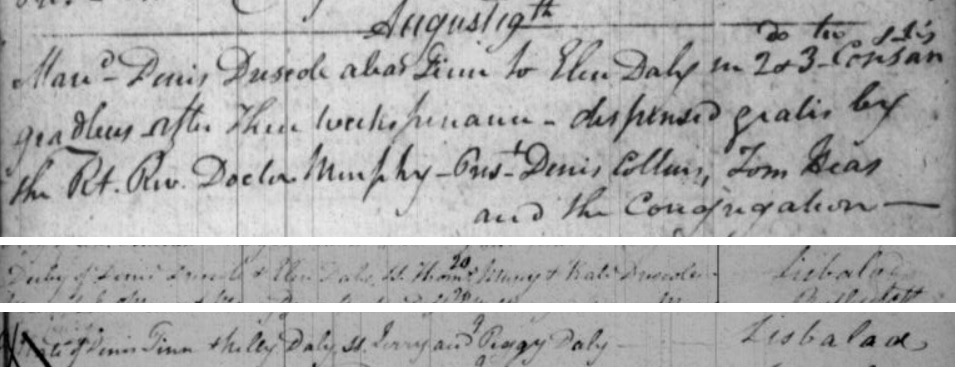 August 19th
Mard - Denis Driscole alias Finn to Elen Daly in 2 & 3 Consan
gradibus after three weeks penance - dispensed gratis by
the Rt. Rev. Doctor Murphy - Prest Denis Collins, Tom Heas
and the Congregation —
Derby of Denis & Elen Daly. Ss. Thoms Murry & Kate Driscole
20
Lisbalad
of Denis Finn & Nelly Daly. Ss. Jerry and Peggy Daly
Lisbalad